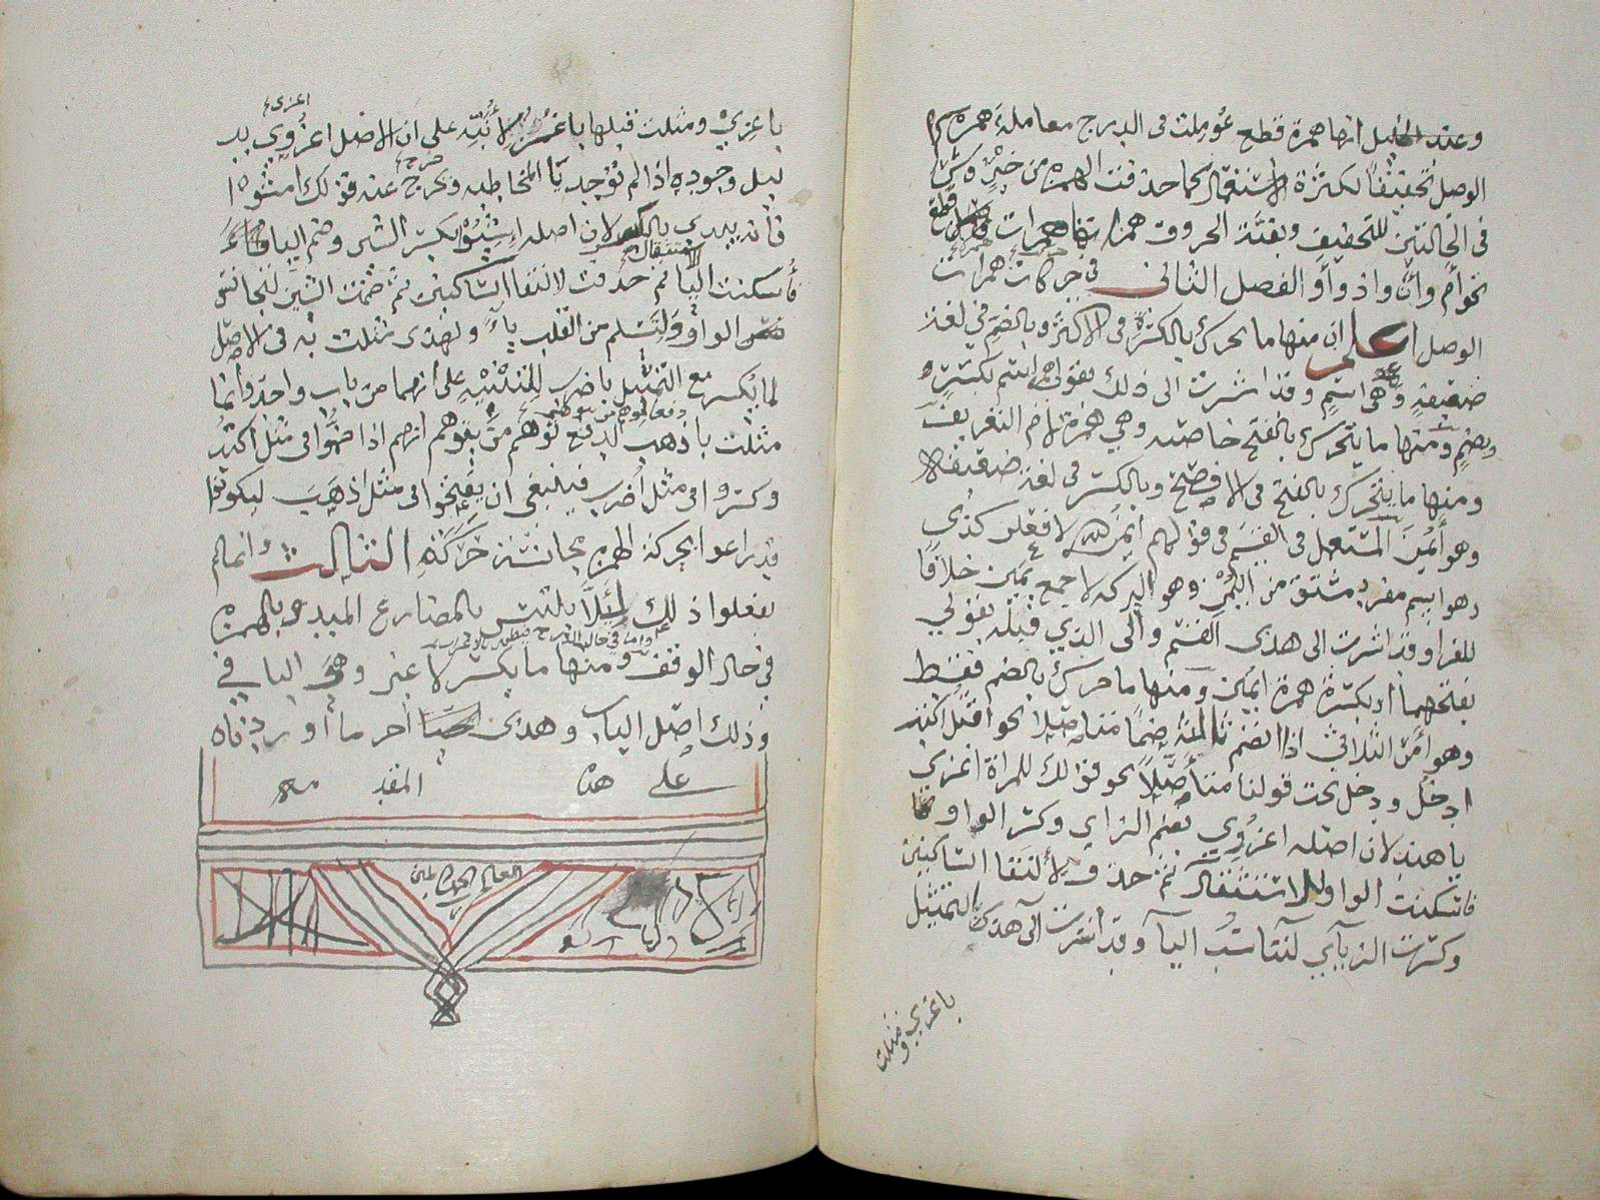 وعند الخليل انها همزة قطع عوملت في الدرج معاملة همزة
الوصل تخفيفا لكثرة الاستعمال كما حذفت الهمزة من خير وشر
في الحالتين للتخفيف وبقية الحروف همزاتها همزات قطع
نحو أم وأن واذ وأو الفصل الثاني في حركات همزات
الوصل اعلم ان منها ما يحرك بالكسرة في الاكثر وبالضم في لغة
ضعيفة وهي اسم وقد اشرت الى ذلك بقولي اسم بكسرة
وبضم ومنها ما يتحرك بالفتح خاصة وهي همزة لام التعريف
ومنها ما يتحرك بالفتح في الافصح وبالكسر في لغة ضعيفة
وهو أيمن المستعمل في القسم في قولهم ايمن الله لا فعلن كذى
وهو اسم مفرد مشتق من اليمن وهو البركة لا جمع يمين خلافا
للفرا وقد اشرت الى هذى القسم والى الذي قبله بقولي
بفتحهما او بكسرة همزة ايمن ومنها ما حرك بالضم فقط
وهو أمر الثلاثي اذا انضم ثالثه ضما متأصلا نحو اقتل اكتب
ادخل ودخل تحت قولنا متأصلا نحو قولك للمراة اغزي
يا هند لان اصله اغزوي بضم الزاي وكسر الواو
فاسكنت الواو للاستثقال ثم حذفت لألتقا الساكنين
وكسرت الزاي لتناسب اليآ وقد أشرت الى هذا التمثيل
باغزي ومثلت
باغزي ومثلت قبلها باغز لأنبه على ان الاصل اغزوي بد
ليل وجوده اذا لم توجد يا المخاطبة وخرج عنه قولك امشوا
فأنه يبدى بالكسر لان اصله امشيو بكسر الشين وضم اليا
فأسكنت اليا ثم حذفت لالتقا الساكنين ثم ضمت الشين لتجانس
الواو ولتسلم من القلب ياء ولهذى مثلت به في الاصل
لما يكسر مع التمثيل باضرب للتنبيه على انهما من باب واحد وانما
مثلت باذهب لدفع توهم من يتوهم انهم اذا ضموا في مثل اكتب
وكسروا في مثل اضرب فينبغي ان يفتحوا في مثل اذهب ليكونوا
قد راعوا بحركة الهمزة مجانسة حركته الثالث وانما لم
يفعلوا ذلك لئلا يلتبس بالمضارع المبدو بالهمزة
في حال الوقف ومنها ما يكسر لا غير وهو الباقي
وذلك اصل الباب وهذى أخر ما أوردناه
على هذه المقدمه
العالمين